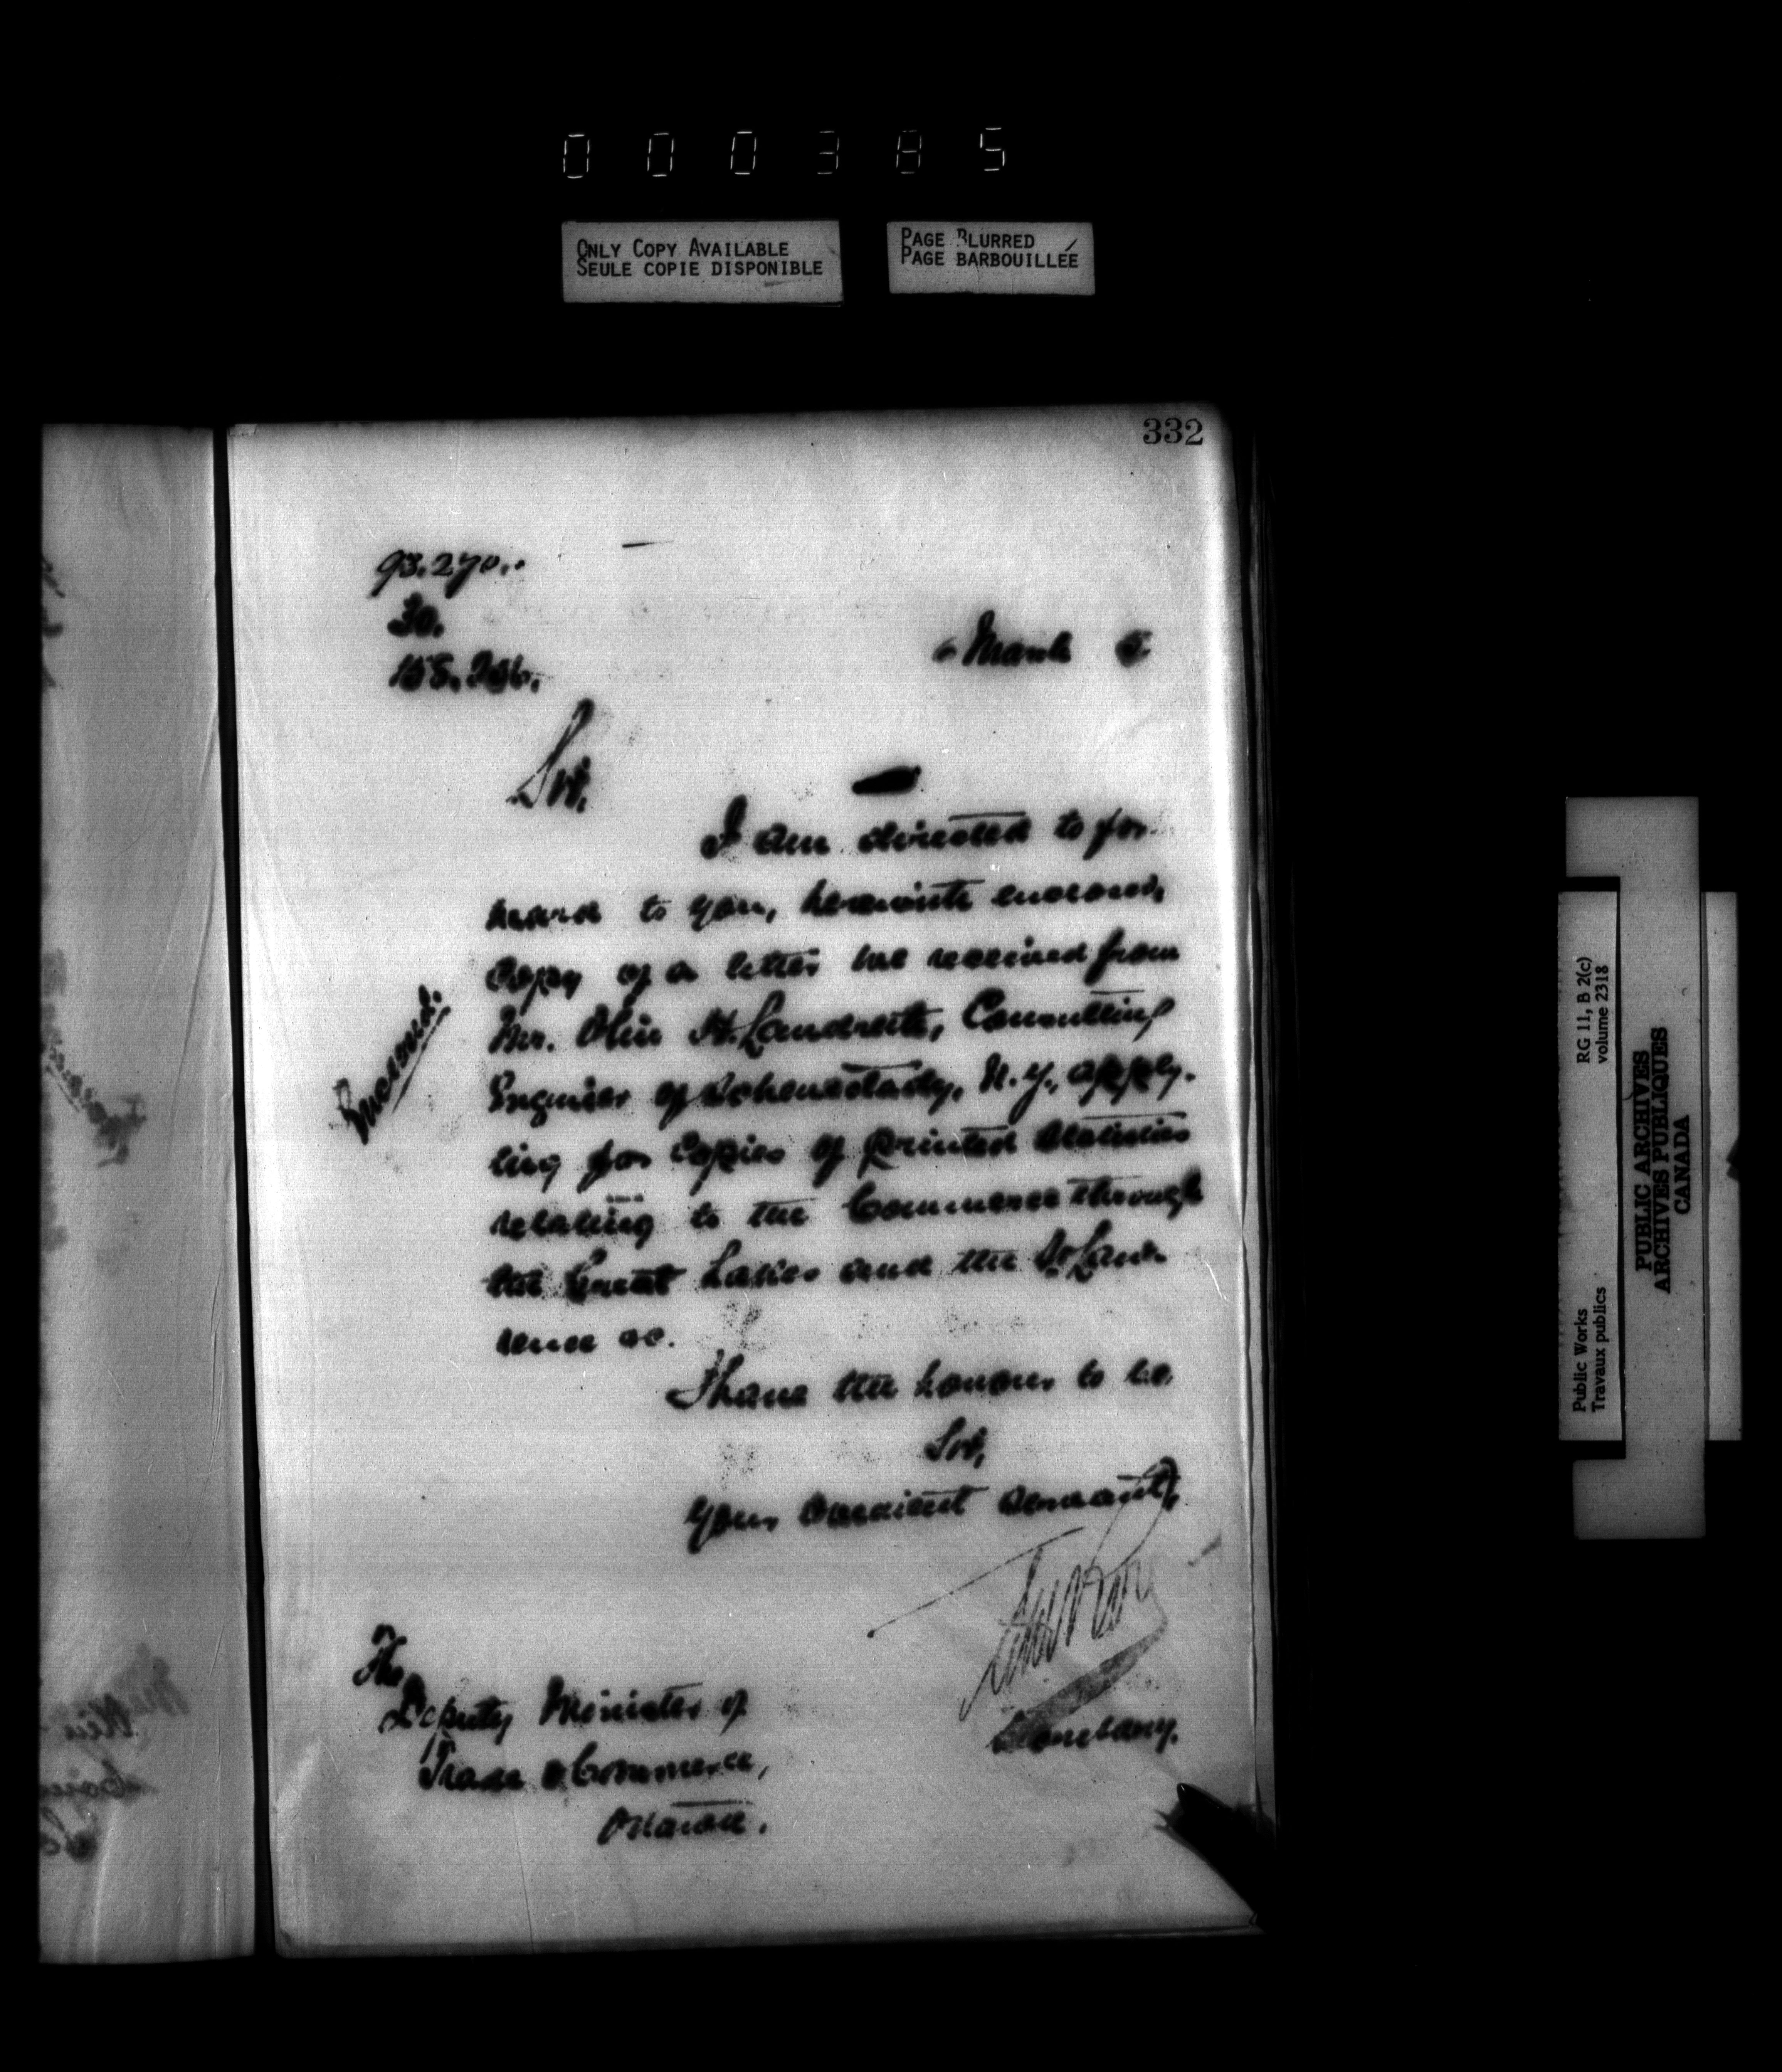 000385
ONLY COPY AVAILABLE
SEULE COPIE DISPONIBLE
PAGE BLURRED
PAGE BARBOUILLÉE
332
93.270.
30.
March
Sir,
I am directed to for-
ward to you, herewith enclosed,
copy of a letter we received from
Mr. Olin H. Landreth, Consulting
Engineer of Schenectady, N.Y., apply-
ing for copies of printed statistics
relating to the Commerce through
the Great Lakes and the St. Law-
rence &c.
Enclosed.
I have the honour to be,
Sir,
Your obedient servant,
Secretary.
The
Deputy Minister of
Trade & Commerce,
Ottawa.
Public Works
Travaux publics
RG 11, B 2(c)
volume 2318
PUBLIC ARCHIVES
ARCHIVES PUBLIQUES
CANADA